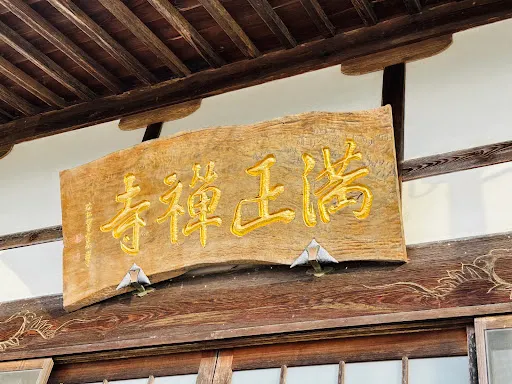 満正禅寺